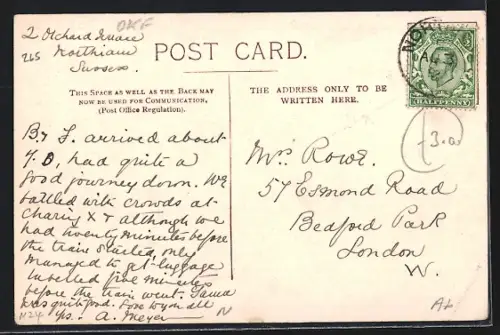 2 Orchard Terrace
Northiam
Sussex
265
OKF
POST CARD.
THIS SPACE AS WELL AS THE BACK MAY
NOW BE USED FOR COMMUNICATION,
(Post Office Regulation).
By J. arrived about
7.0, had quite a
good journey down. We
battled with crowds at
Charing X & although we
had twenty minutes before
the train started, only
managed to get luggage
labelled five minutes
before the train went.
was quite good. Love to you all
yrs. A. Meyer
1124
N
THE ADDRESS ONLY TO BE
WRITTEN HERE.
NOR
AU 3
HALFPENNY
Mrs Rowe.
57 Esmond Road
Bedford Park
London
W.
3.00